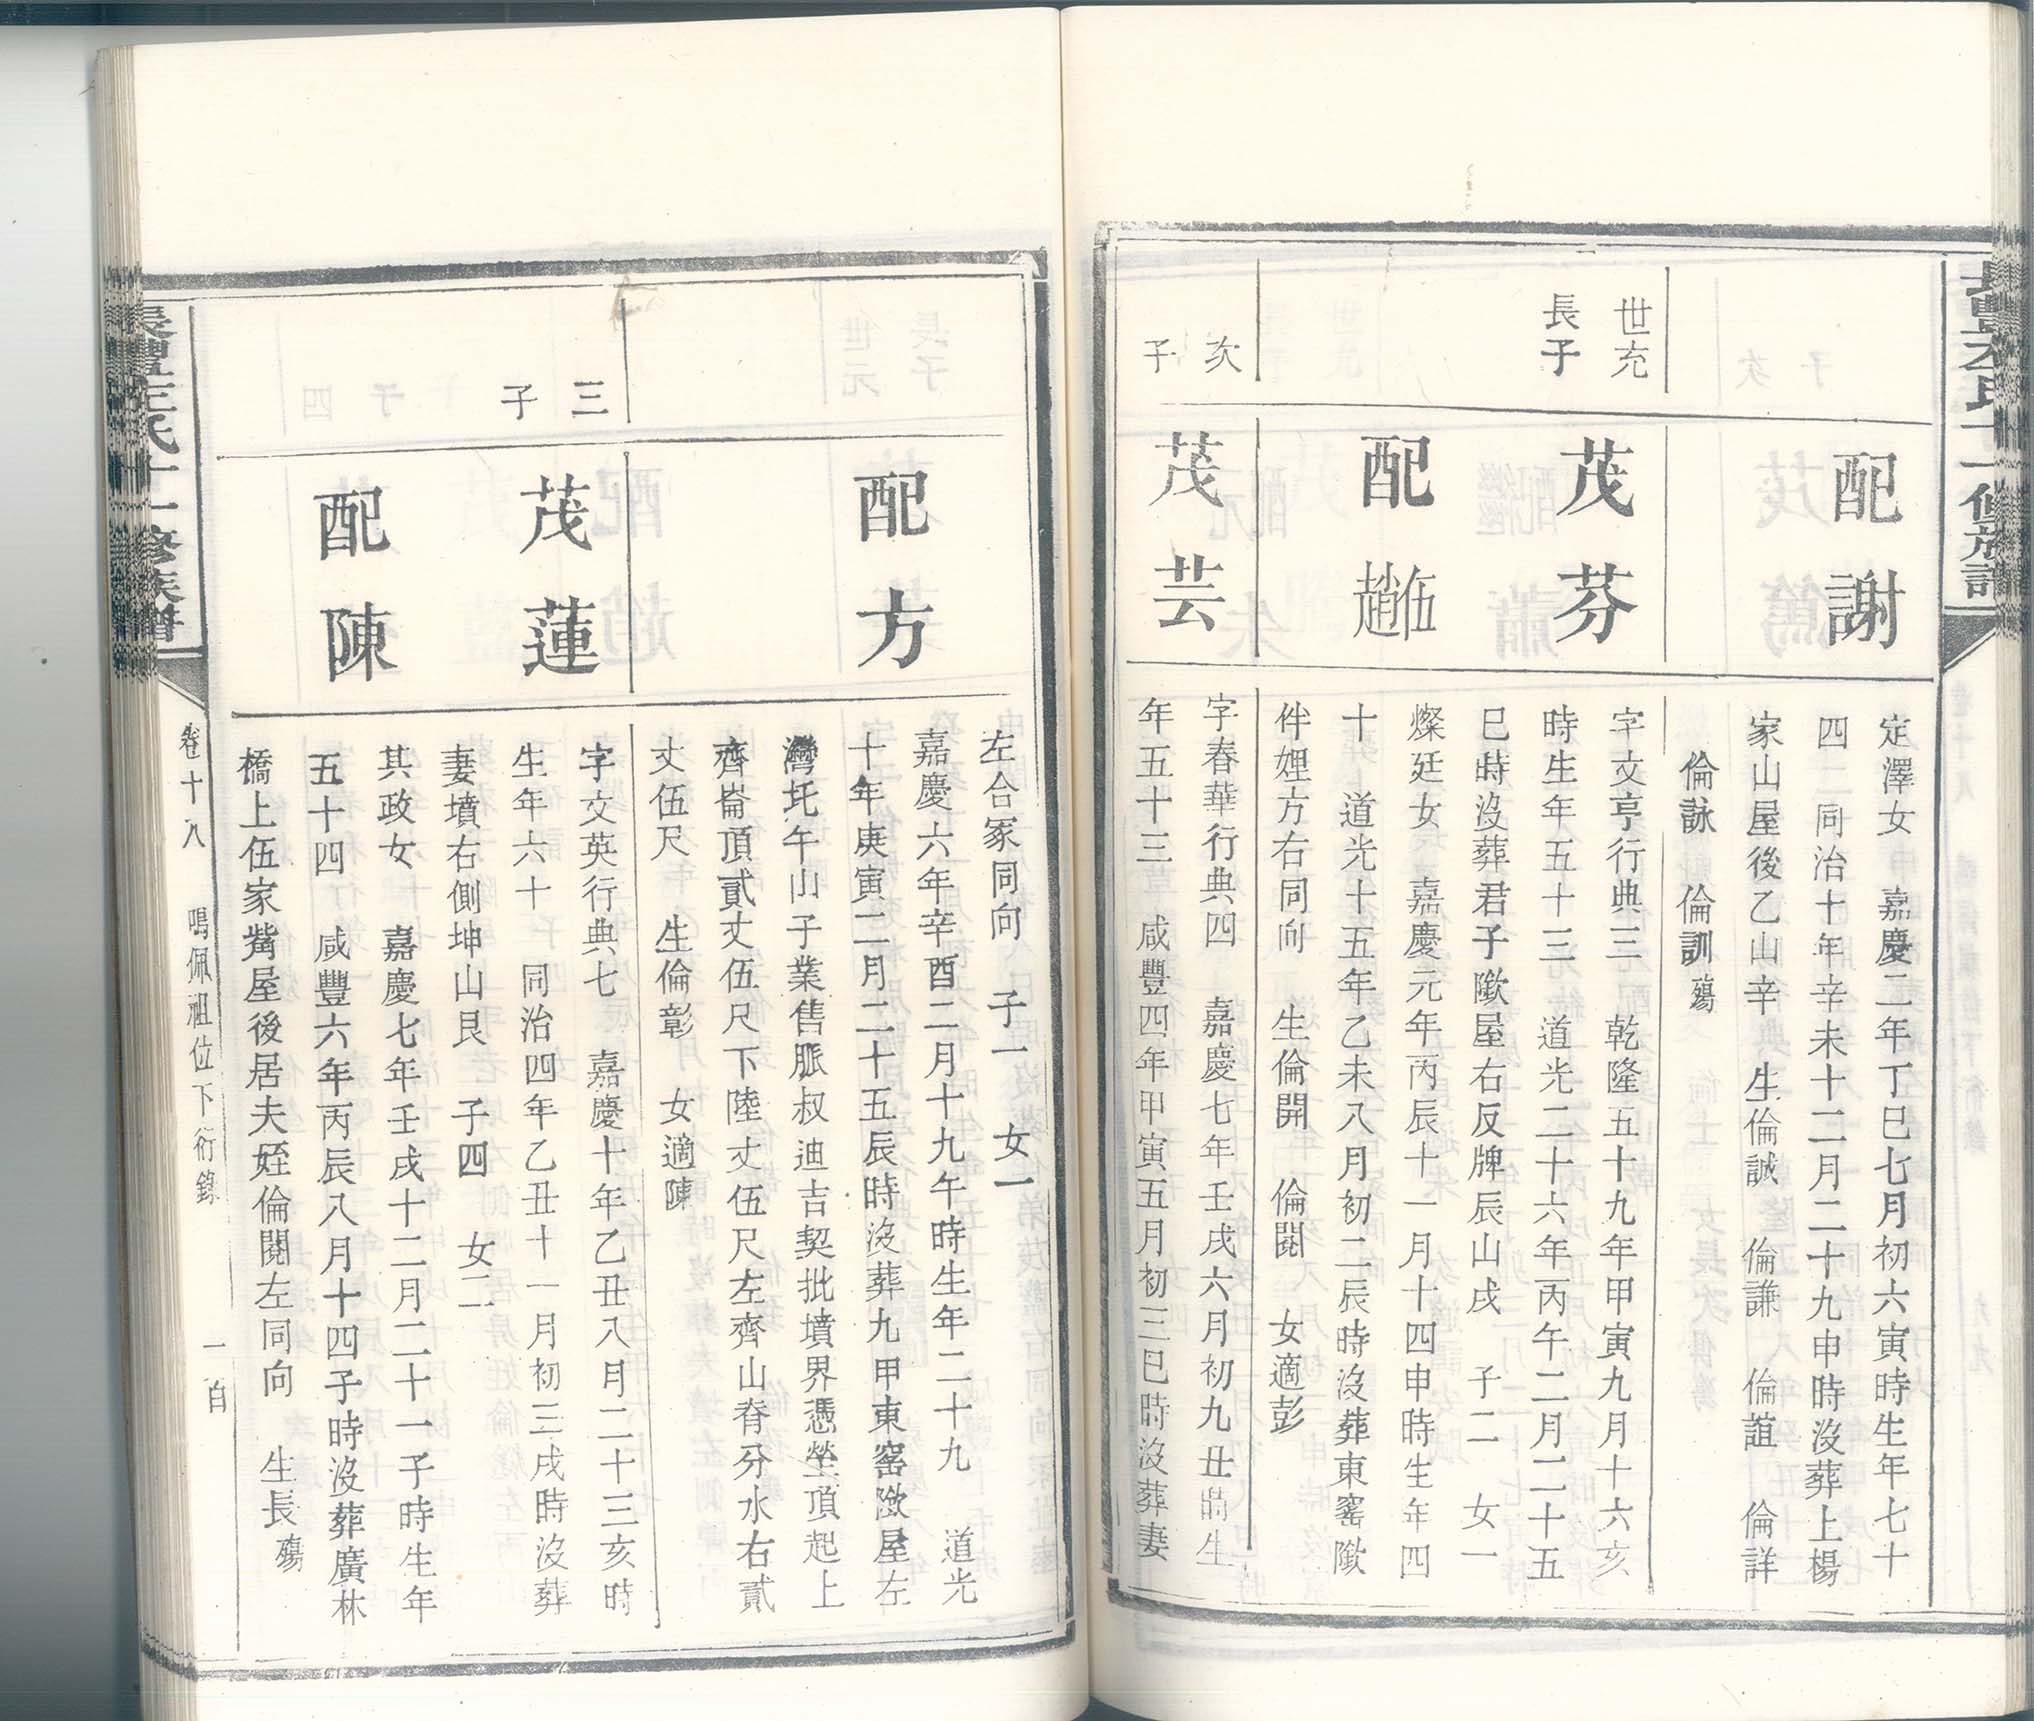 配謝
定澤女　嘉慶二年丁巳七月初六寅時生年七十
四　同治十年辛未十二月二十九申時沒葬上楊
家山屋後乙山辛　生倫誠　倫謙　倫誼　倫詳
倫詠　倫訓殤
世充
長子
茂芬
字文亨行典三　乾隆五十九年甲寅九月十六亥
時生年五十三　道光二十六年丙午二月二十五
巳時沒葬君子歘屋右反牌辰山戌　子二　女一
配伍趙
燦廷女　嘉慶元年丙辰十一月十四申時生年四
十　道光十五年乙未八月初二辰時沒葬東窰歘
伴娌方右同向　生倫開　倫閱　女適彭
次
子
茂芸
字春華行典四　嘉慶七年壬戌六月初九丑時生
年五十三　咸豐四年甲寅五月初三巳時沒葬妻
左合冢同向　子一　女一
配方
嘉慶六年辛酉二月十九午時生年二十九　道光
十年庚寅二月二十五辰時沒葬九甲東窰歘屋左
灣圫午山子業售脈叔迪吉契批墳界憑塋頂起上
齊崙頂貳丈伍尺下陸丈伍尺左齊山脊分水右貳
丈伍尺　生倫彰　女適陳
三
子
茂蓮
字文英行典七　嘉慶十年乙丑八月二十三亥時
生年六十　同治四年乙丑十一月初三戌時沒葬
妻墳右側坤山艮　子四　女二
配陳
其政女　嘉慶七年壬戌十二月二十一子時生年
五十四　咸豐六年丙辰八月十四子時沒葬廣林
橋上伍家觜屋後居夫姪倫閱左同向　生長殤
長豐左氏十一修族譜
卷十八　鳴佩祖位下衍錄　一百